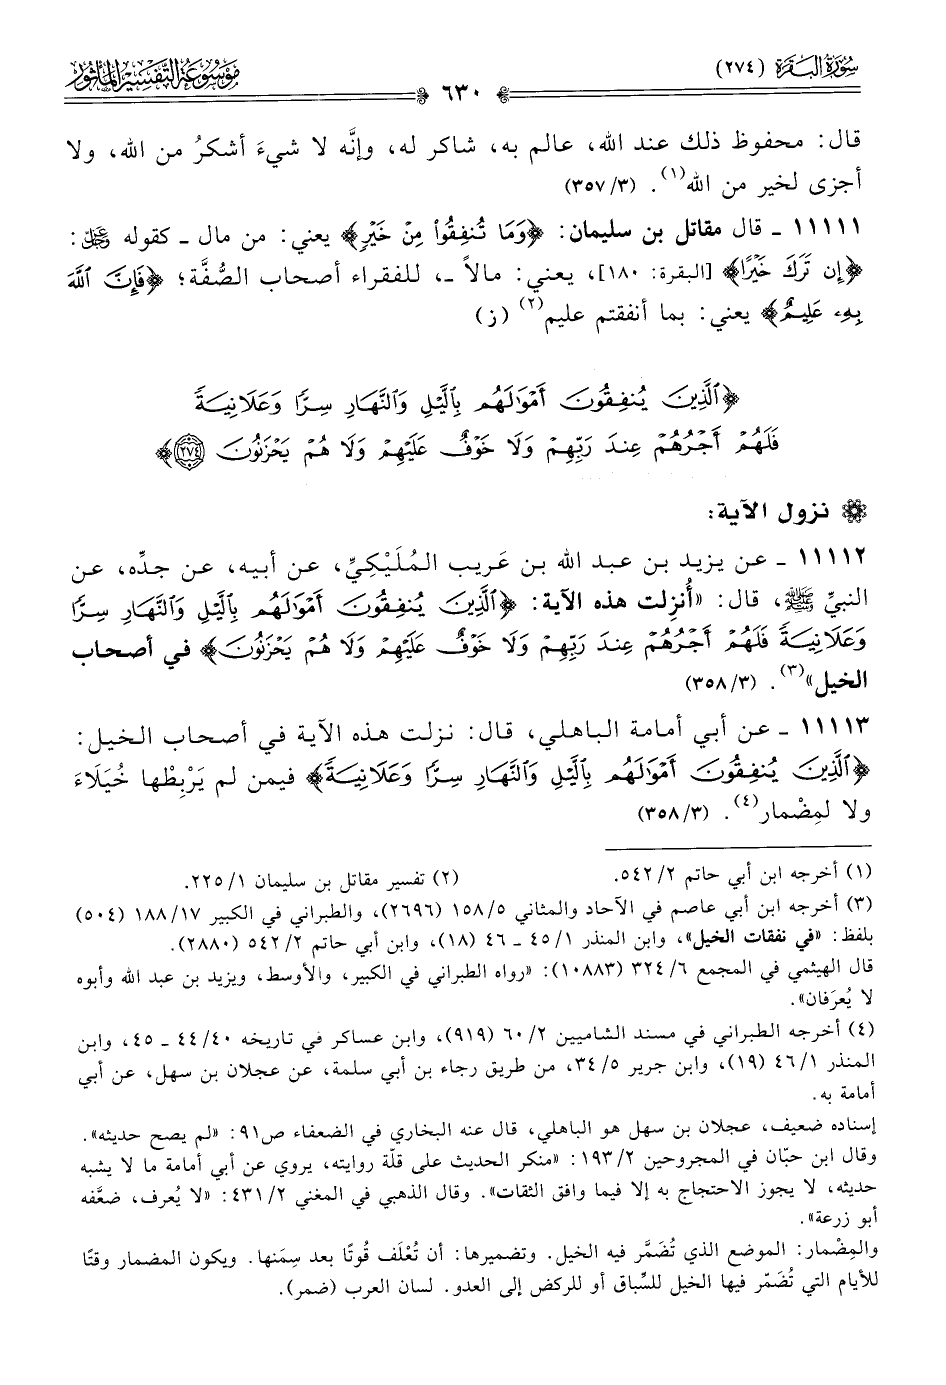 سُورَةُ البَقَرَةِ (٢٧٤)
٦٣٠
مَوْسُوعَةُ التَّفْسِيرِ المَأْثُورِ
قال: محفوظ ذلك عند الله، عالم به، شاكر له، وإنَّه لا شيءَ أشكرُ من الله، ولا
أجزى لخير من الله(١). (٣٥٧/٣)
١١١١١ ـ قال مقاتل بن سليمان: ﴿وَمَا تُنفِقُوا۟ مِنْ خَيْرٍ﴾ يعني: من مال ـ كقوله ﷿:
﴿إِن تَرَكَ خَيْرًا﴾ [البقرة: ١٨٠]، يعني: مالاً ـ، للفقراء أصحاب الصُّفَّة؛ ﴿فَإِنَّ ٱللَّهَ
بِهِۦ عَلِيمٌ﴾ يعني: بما أنفقتم عليم(٢) (ز)
﴿ٱلَّذِينَ يُنفِقُونَ أَمْوَٰلَهُم بِٱلَّيْلِ وَٱلنَّهَارِ سِرًّا وَعَلَانِيَةً
فَلَهُمْ أَجْرُهُمْ عِندَ رَبِّهِمْ وَلَا خَوْفٌ عَلَيْهِمْ وَلَا هُمْ يَحْزَنُونَ ٢٧٤﴾
نزول الآية:
١١١١٢ ـ عن يزيد بن عبد الله بن عَريب المُلَيْكِيِّ، عن أبيه، عن جدِّه، عن
النبيِّ ﷺ، قال: «أُنزِلت هذه الآية: ﴿ٱلَّذِينَ يُنفِقُونَ أَمْوَٰلَهُم بِٱلَّيْلِ وَٱلنَّهَارِ سِرًّا
وَعَلَانِيَةً فَلَهُمْ أَجْرُهُمْ عِندَ رَبِّهِمْ وَلَا خَوْفٌ عَلَيْهِمْ وَلَا هُمْ يَحْزَنُونَ﴾ في أصحاب
الخيل»(٣). (٣٥٨/٣)
١١١١٣ ـ عن أبي أمامة الباهلي، قال: نزلت هذه الآية في أصحاب الخيل:
﴿ٱلَّذِينَ يُنفِقُونَ أَمْوَٰلَهُم بِٱلَّيْلِ وَٱلنَّهَارِ سِرًّا وَعَلَانِيَةً﴾ فيمن لم يَرْبِطْها خُيَلَاءَ
ولا لمِضْمار(٤). (٣٥٨/٣)
(١) أخرجه ابن أبي حاتم ٥٤٢/٢. (٢) تفسير مقاتل بن سليمان ٢٢٥/١.
(٣) أخرجه ابن أبي عاصم في الآحاد والمثاني ١٥٨/٥ (٢٦٩٦)، والطبراني في الكبير ١٨٨/١٧ (٥٠٤)
بلفظ: «في نفقات الخيل»، وابن المنذر ٤٥/١ ـ ٤٦ (١٨)، وابن أبي حاتم ٥٤٢/٢ (٢٨٨٠).
قال الهيثمي في المجمع ٣٢٤/٦ (١٠٨٨٣): «رواه الطبراني في الكبير، والأوسط، ويزيد بن عبد الله وأبوه
لا يُعرَفان».
(٤) أخرجه الطبراني في مسند الشاميين ٦٠/٢ (٩١٩)، وابن عساكر في تاريخه ٤٤/٤٠ ـ ٤٥، وابن
المنذر ٤٦/١ (١٩)، وابن جرير ٣٤/٥، من طريق رجاء بن أبي سلمة، عن عجلان بن سهل، عن أبي
أمامة به.
إسناده ضعيف، عجلان بن سهل هو الباهلي، قال عنه البخاري في الضعفاء ص٩١: «لم يصح حديثه».
وقال ابن حبّان في المجروحين ١٩٣/٢: «منكر الحديث على قلّة روايته، يروي عن أبي أمامة ما لا يشبه
حديثه، لا يجوز الاحتجاج به إلا فيما وافق الثقات». وقال الذهبي في المغني ٤٣١/٢: «لا يُعرف، ضعَّفه
أبو زرعة».
والمِضْمار: الموضع الذي تُضَمَّر فيه الخيل. وتضميرها: أن تُعْلَف قُوتًا بعد سِمَنها. ويكون المضمار وقتًا
للأيام التي تُضَمّر فيها الخيل للسِّباق أو للركض إلى العدو. لسان العرب (ضمر).